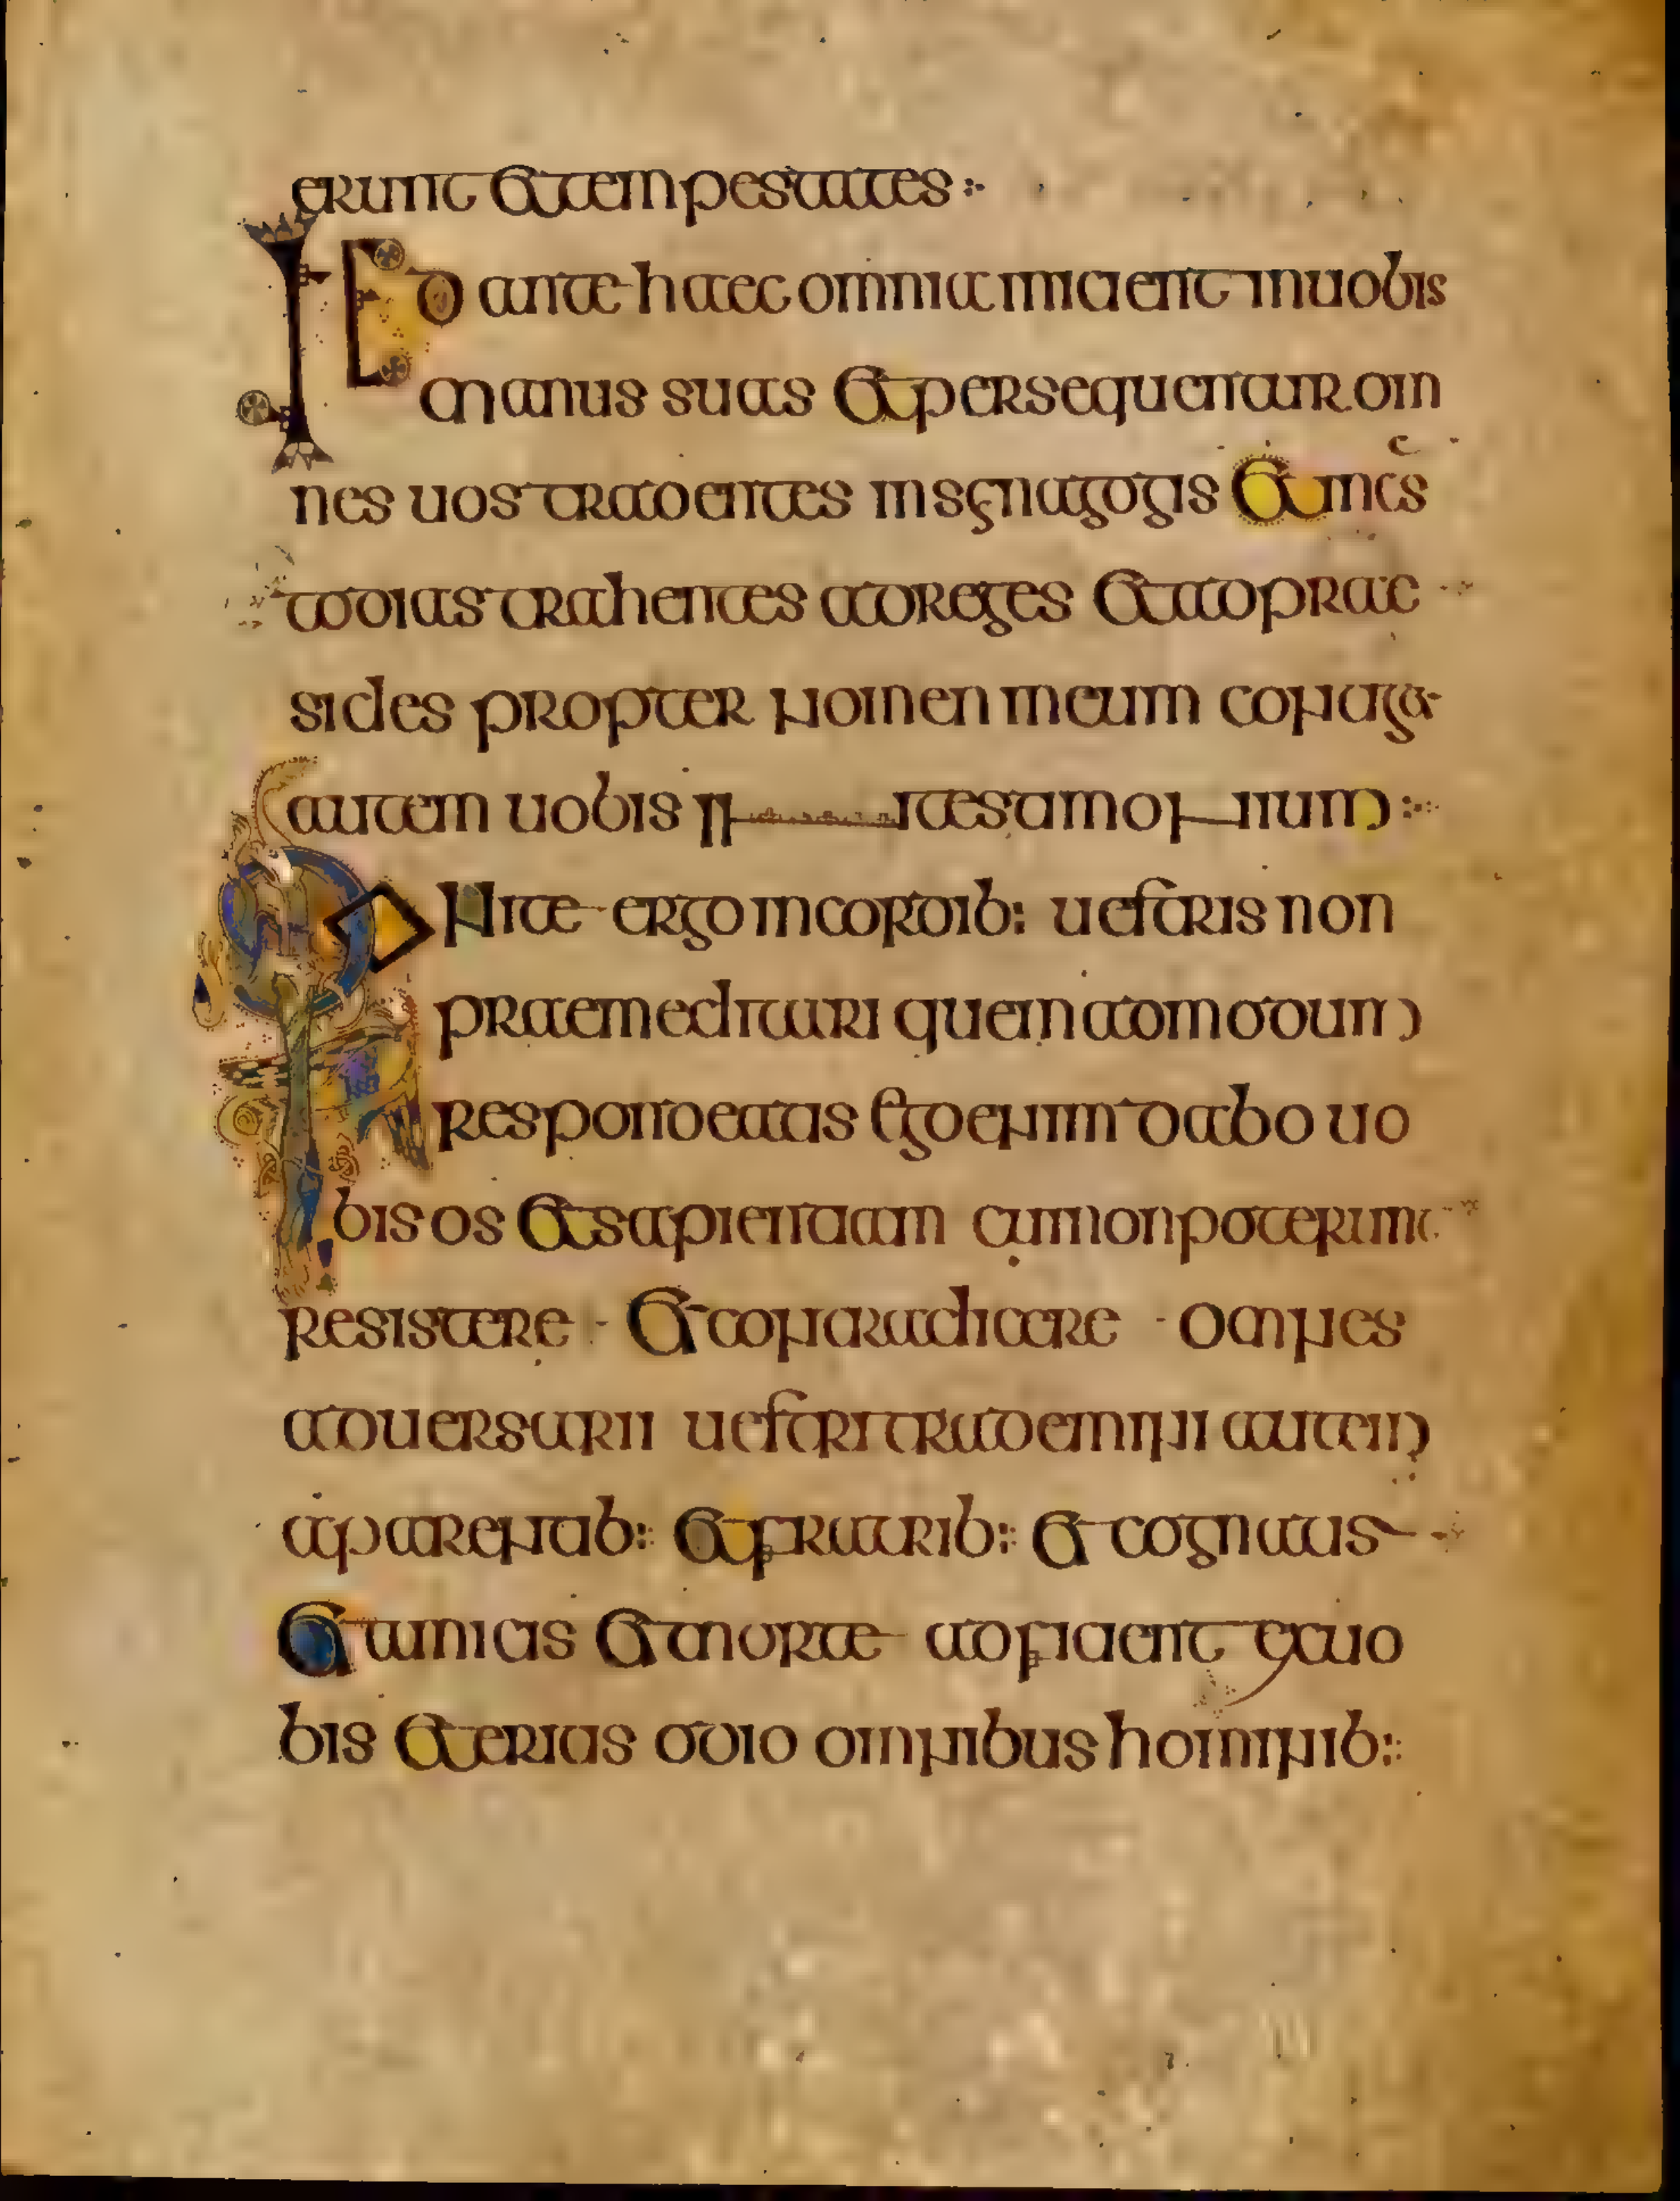 erunt et tempestates :·
Sed ante haec omnia inicient in uobis
manus suas et persequentur om
nes uos tradentes in synagogis et in cus
todias trahentes ad reges et ad prae
sides propter nomen meum continget
autem uobis in testimonium :·
Ponite ergo in cordib: uestris non
praemeditari quem ad modum
respondeatis ego enim dabo uo
bis os et sapientiam cui non poterunt
resistere · et contradicere · omnes
aduersarii uestri trademini autem
a parentib: et fratrib: et cognatis
et amicis et morte adficient ex uo
bis et eritis odio omnibus hominib: